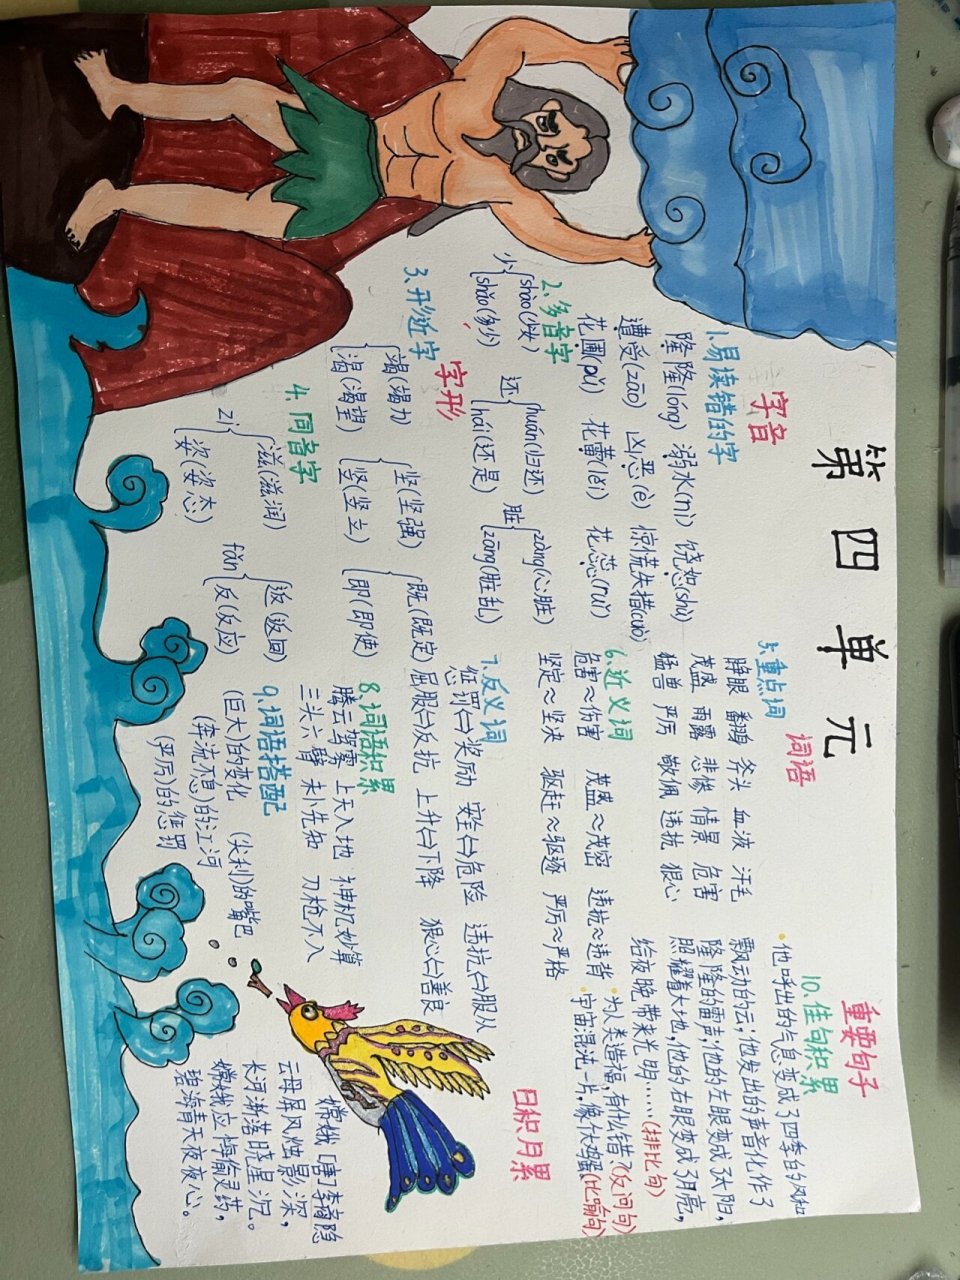 第四单元
字音
1.易读错的字
隆隆(lóng) 溺水(nì) 饶恕(shù)
遭受(zāo) 凶恶(è) 惊慌失措(cuò)
花圃(pǔ) 花蕾(lěi) 花蕊(ruǐ)
2、多音字
少{shào(少女) shǎo(多少)
还{huán(归还) hái(还是)
脏{zàng(心脏) zāng(脏乱)
字形
3.形近字
竭(竭力) 渴(渴望)
坚(坚强) 竖(竖立)
既(既定) 即(即使)
4.同音字
zī{滋(滋润) 姿(姿态)
fǎn{返(返回) 反(反应)
词语
5.重点词
睁眼 翻身 斧头 血液 汗毛
茂盛 雨露 悲惨 情景 危害
猛兽 严厉 敬佩 违抗 狠心
6.近义词
危害~伤害 茂盛~茂密 违抗~违背
坚定~坚决 驱赶~驱逐 严厉~严格
7.反义词
惩罚⇔奖励 安全⇔危险 违抗⇔服从
屈服⇔反抗 上升⇔下降 狠心⇔善良
8.词语积累
腾云驾雾 上天入地 神机妙算
三头六臂 未卜先知 刀枪不入
9.词语搭配
(巨大)的变化 (尖利)的嘴巴
(奔流不息)的江河
(严厉)的惩罚
重要句子
10.佳句积累
·他呼出的气息变成了四季的风和
飘动的云;他发出的声音化作了
隆隆的雷声;他的左眼变成了太阳,
照耀着大地;他的右眼变成了月亮,
给夜晚带来光明……(排比句)
·为人类造福,有什么错?(反问句)
·宇宙混沌一片,像个大鸡蛋(比喻句)
日积月累
嫦娥 [唐]李商隐
云母屏风烛影深,
长河渐落晓星沉。
嫦娥应悔偷灵药,
碧海青天夜夜心。